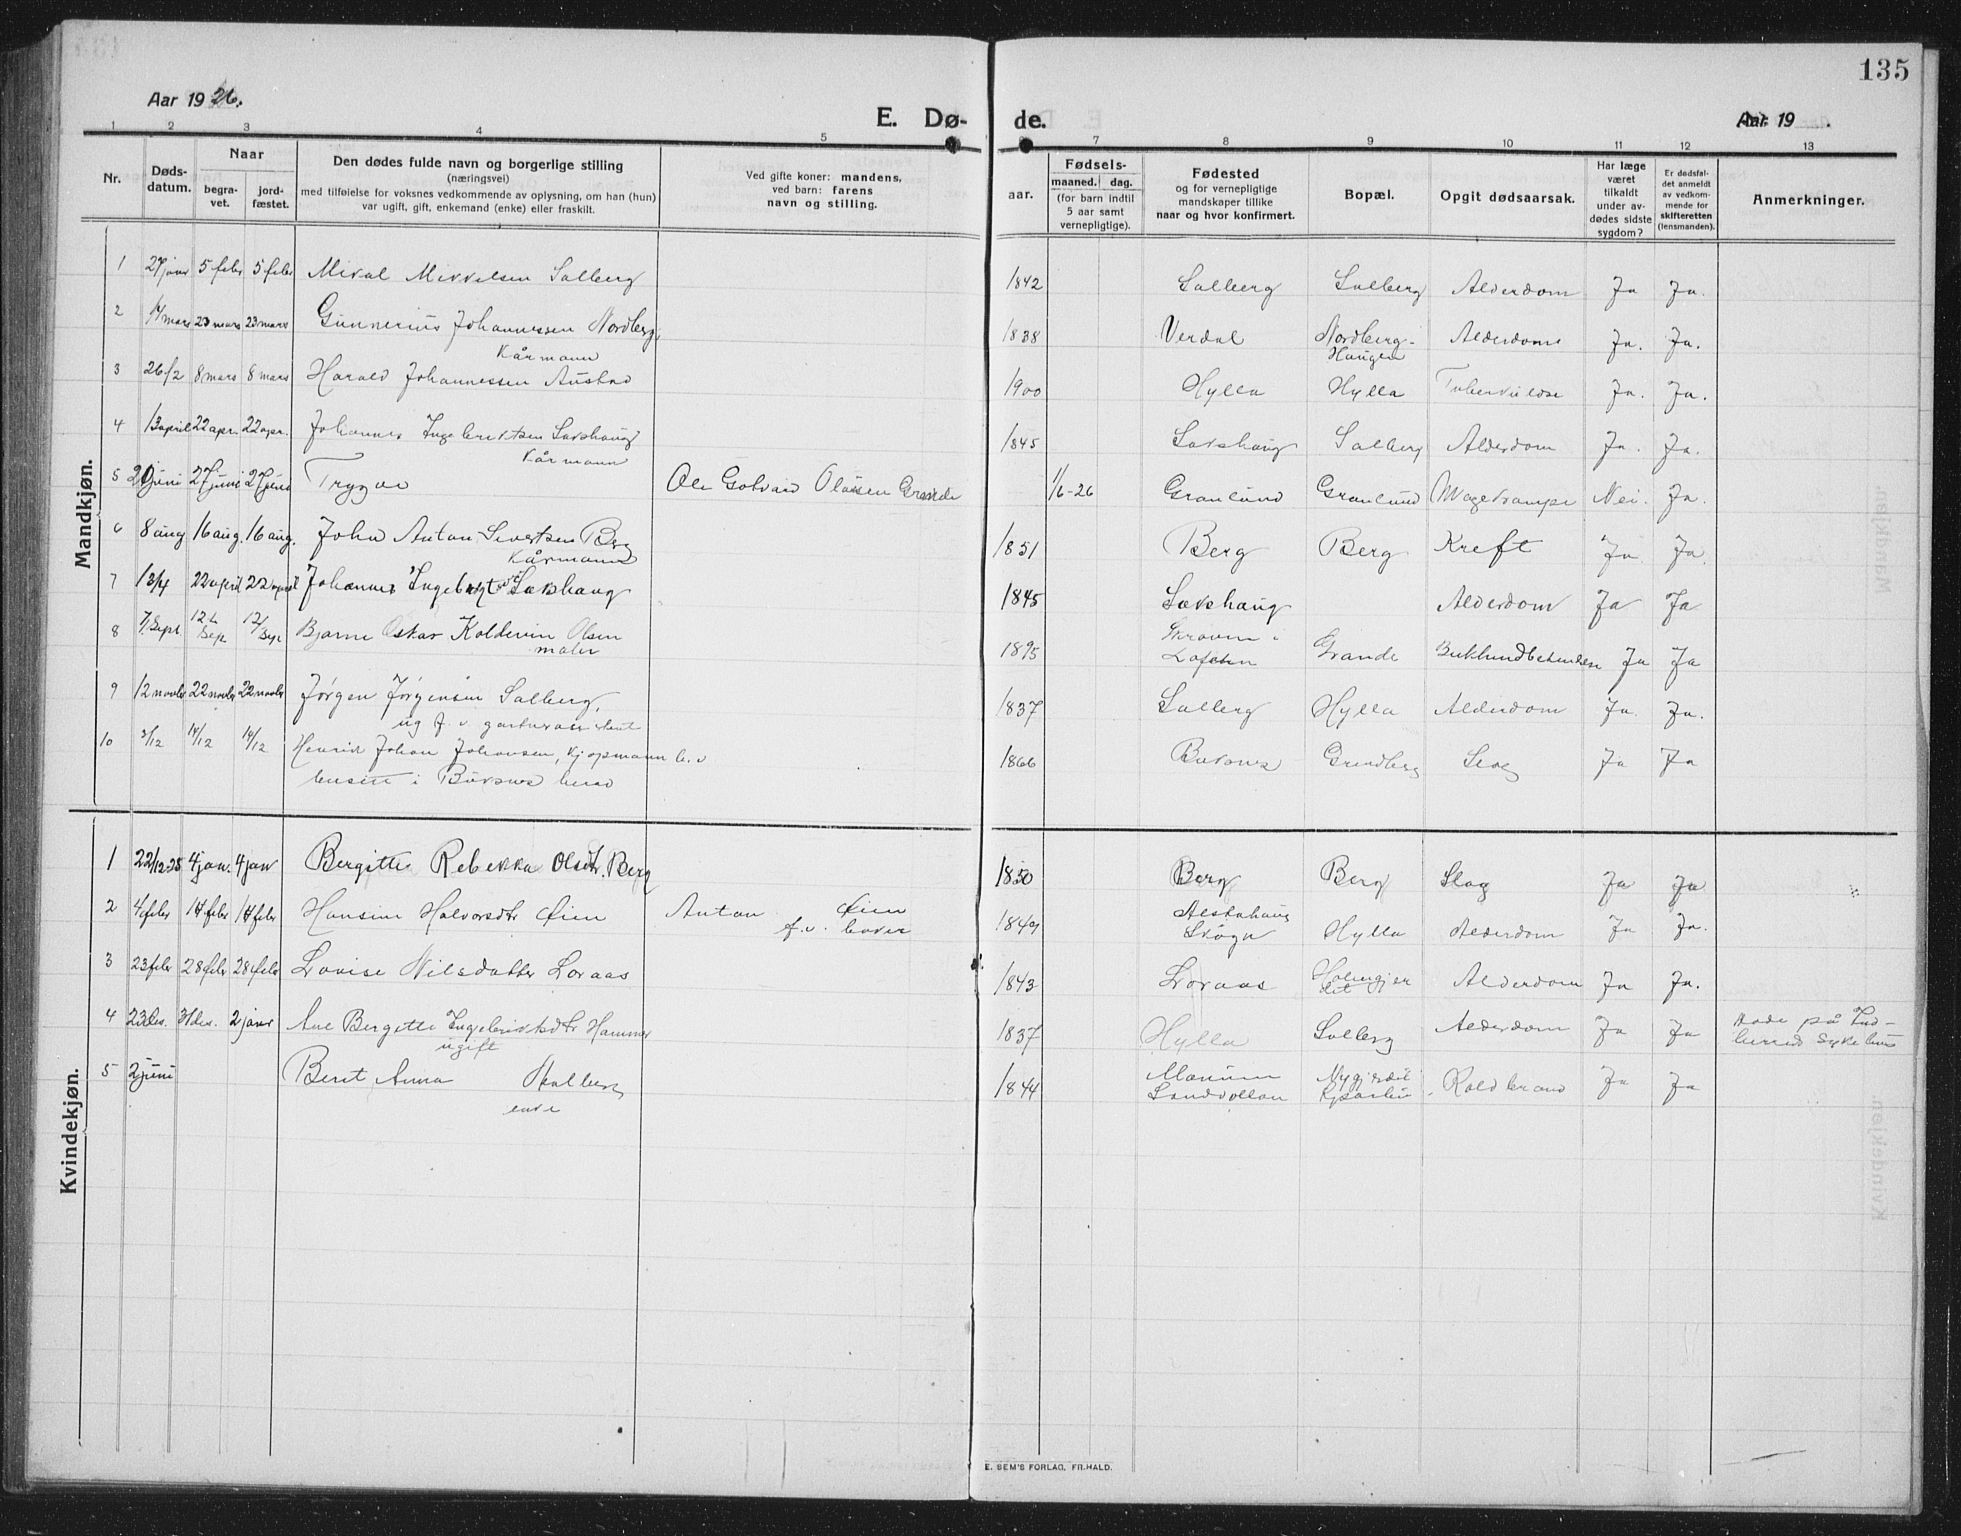 135
Aar 1926.
E. Dø-
de.
Aar 19 .
1 2 3 4 5 7 8 9 10 11 12 13
Nr.
Døds-
datum.
Naar
begra-
vet.
jord-
fæstet.
Den dødes fulde navn og borgerlige stilling
(næringsvei)
med tilføielse for voksnes vedkommende av oplysning, om han (hun)
var ugift, gift, enkemand (enke) eller fraskilt.
Ved gifte koner: mandens,
ved barn: farens
navn og stilling.
aar.
Fødsels-
maaned. dag.
(for barn indtil
5 aar samt
vernepligtige).
Fødested
og for vernepligtige
mandskaper tillike
naar og hvor konfirmert.
Bopæl.
Opgit dødsaarsak.
Har læge
været
tilkaldt
under av-
dødes sidste
sygdom?
Er dødsfal-
det anmeldt
av vedkom-
mende for
skifteretten
(lensmanden).
Anmerkninger.
Mandkjøn.
1 27 janr 5 febr 5 febr Mikal Mikkelsen Salberg 1842 Salberg Salberg Alderdom Ja Ja.
2 14 mars 23 mars 23 mars Gunnerius Johannessen Nordberg 1838 Verdal Nordberg- Alderdom Ja. Ja.
Kårmann Haugen
3 26/2 8 mars 8 mars Harald Johannessen Austad 1900 Hylla Hylla Tuberkulose Ja. Ja.
4 13 april 22 apr. 22 apr. Johannes Ingebriktsen Sakshaug 1845 Sakshaug Salberg Alderdom Ja. Ja.
Kårmann
5 20 juni 27 juni 27 juni Trygve Ole Gotvard Olausen Grande 1/6-26 Granlund Granlund Magekrampe Nei. Ja.
6 8 aug 16 aug. 16 aug. John Anton Sivertsen Berg 1851 Berg Berg Kreft Ja. Ja.
Kårmann
7 13/4 22 april 22 april Johannes Ingebrigts. Sakshaug 1845 Sakshaug Alderdom Ja Ja
8 7/Sept 12 Sep 12/Sep Bjarne Oskar Kolderin Olsen 1895 Skroven i Grande Ja Ja
maler Lofoten
9 12 novbr 22 novbr 22 novbr Jørgen Jørgensen Salberg, 1837 Salberg Hylla Alderdom Ja. Ja.
ug f. v.
10 3/12 14/12 14/12 Henrik Johan Johansen, Kjøpmann 1866 Buksnes Grindberg Slag Ja Ja
i Buksnes herad
Kvindekjøn.
1 22/12-25 4 jan. 4 jan Bergitte Rebekka Olsdtr. Berg 1850 Berg Berg Slag Ja Ja
2 4 febr 14 febr 14 febr Hansine Halvorsdtr Øien Anton Øien 1849 Alstahaug Hylla Alderdom Ja Ja.
f. v. Skogn
3 23 febr 28 febr 28 febr Lovise Nilsdatter Loraas 1843 Loraas Alderdom Ja Ja.
4 23 des. 31 des. 2 janr Ane Bergitte Ingebriktsdtr Hammer 1837 Hylla Salberg Alderdom Ja Ja Døde på Ind-
ugift herreds Sykehus
5 2 juni Berit Anna Skalberg 1844 Koldbrand Ja Ja
enke Sandvollan
E. SEM'S FORLAG, FR.HALD.